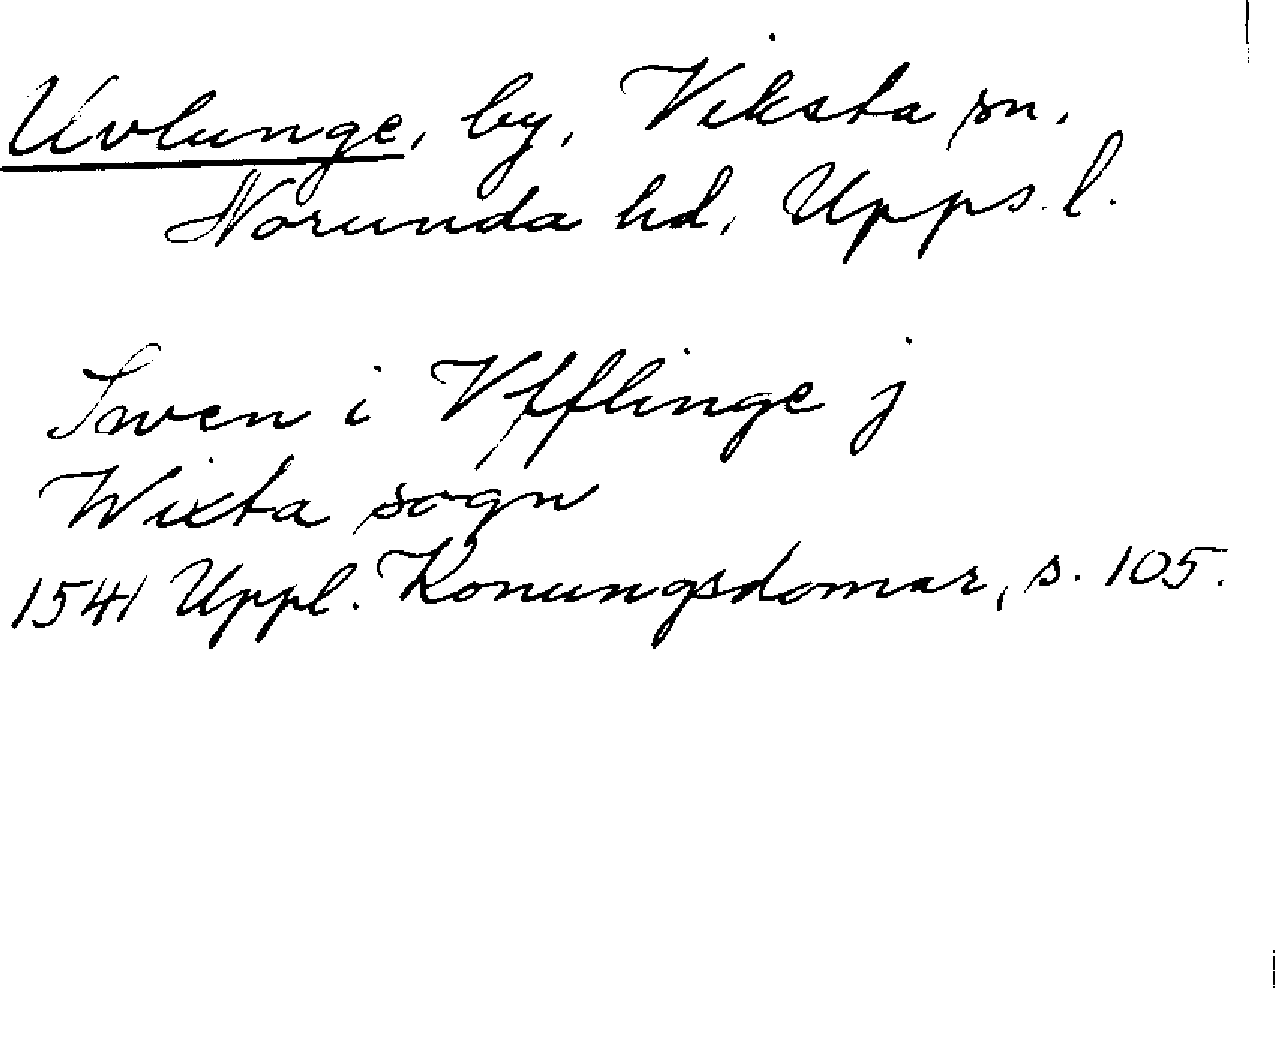 Uvlunge, by, Viksta sn,
Norunda hd, Upps. l.
Swen i Vfflinge j
Wixta sogn
1541 Uppl. Konungsdomar, s. 105.